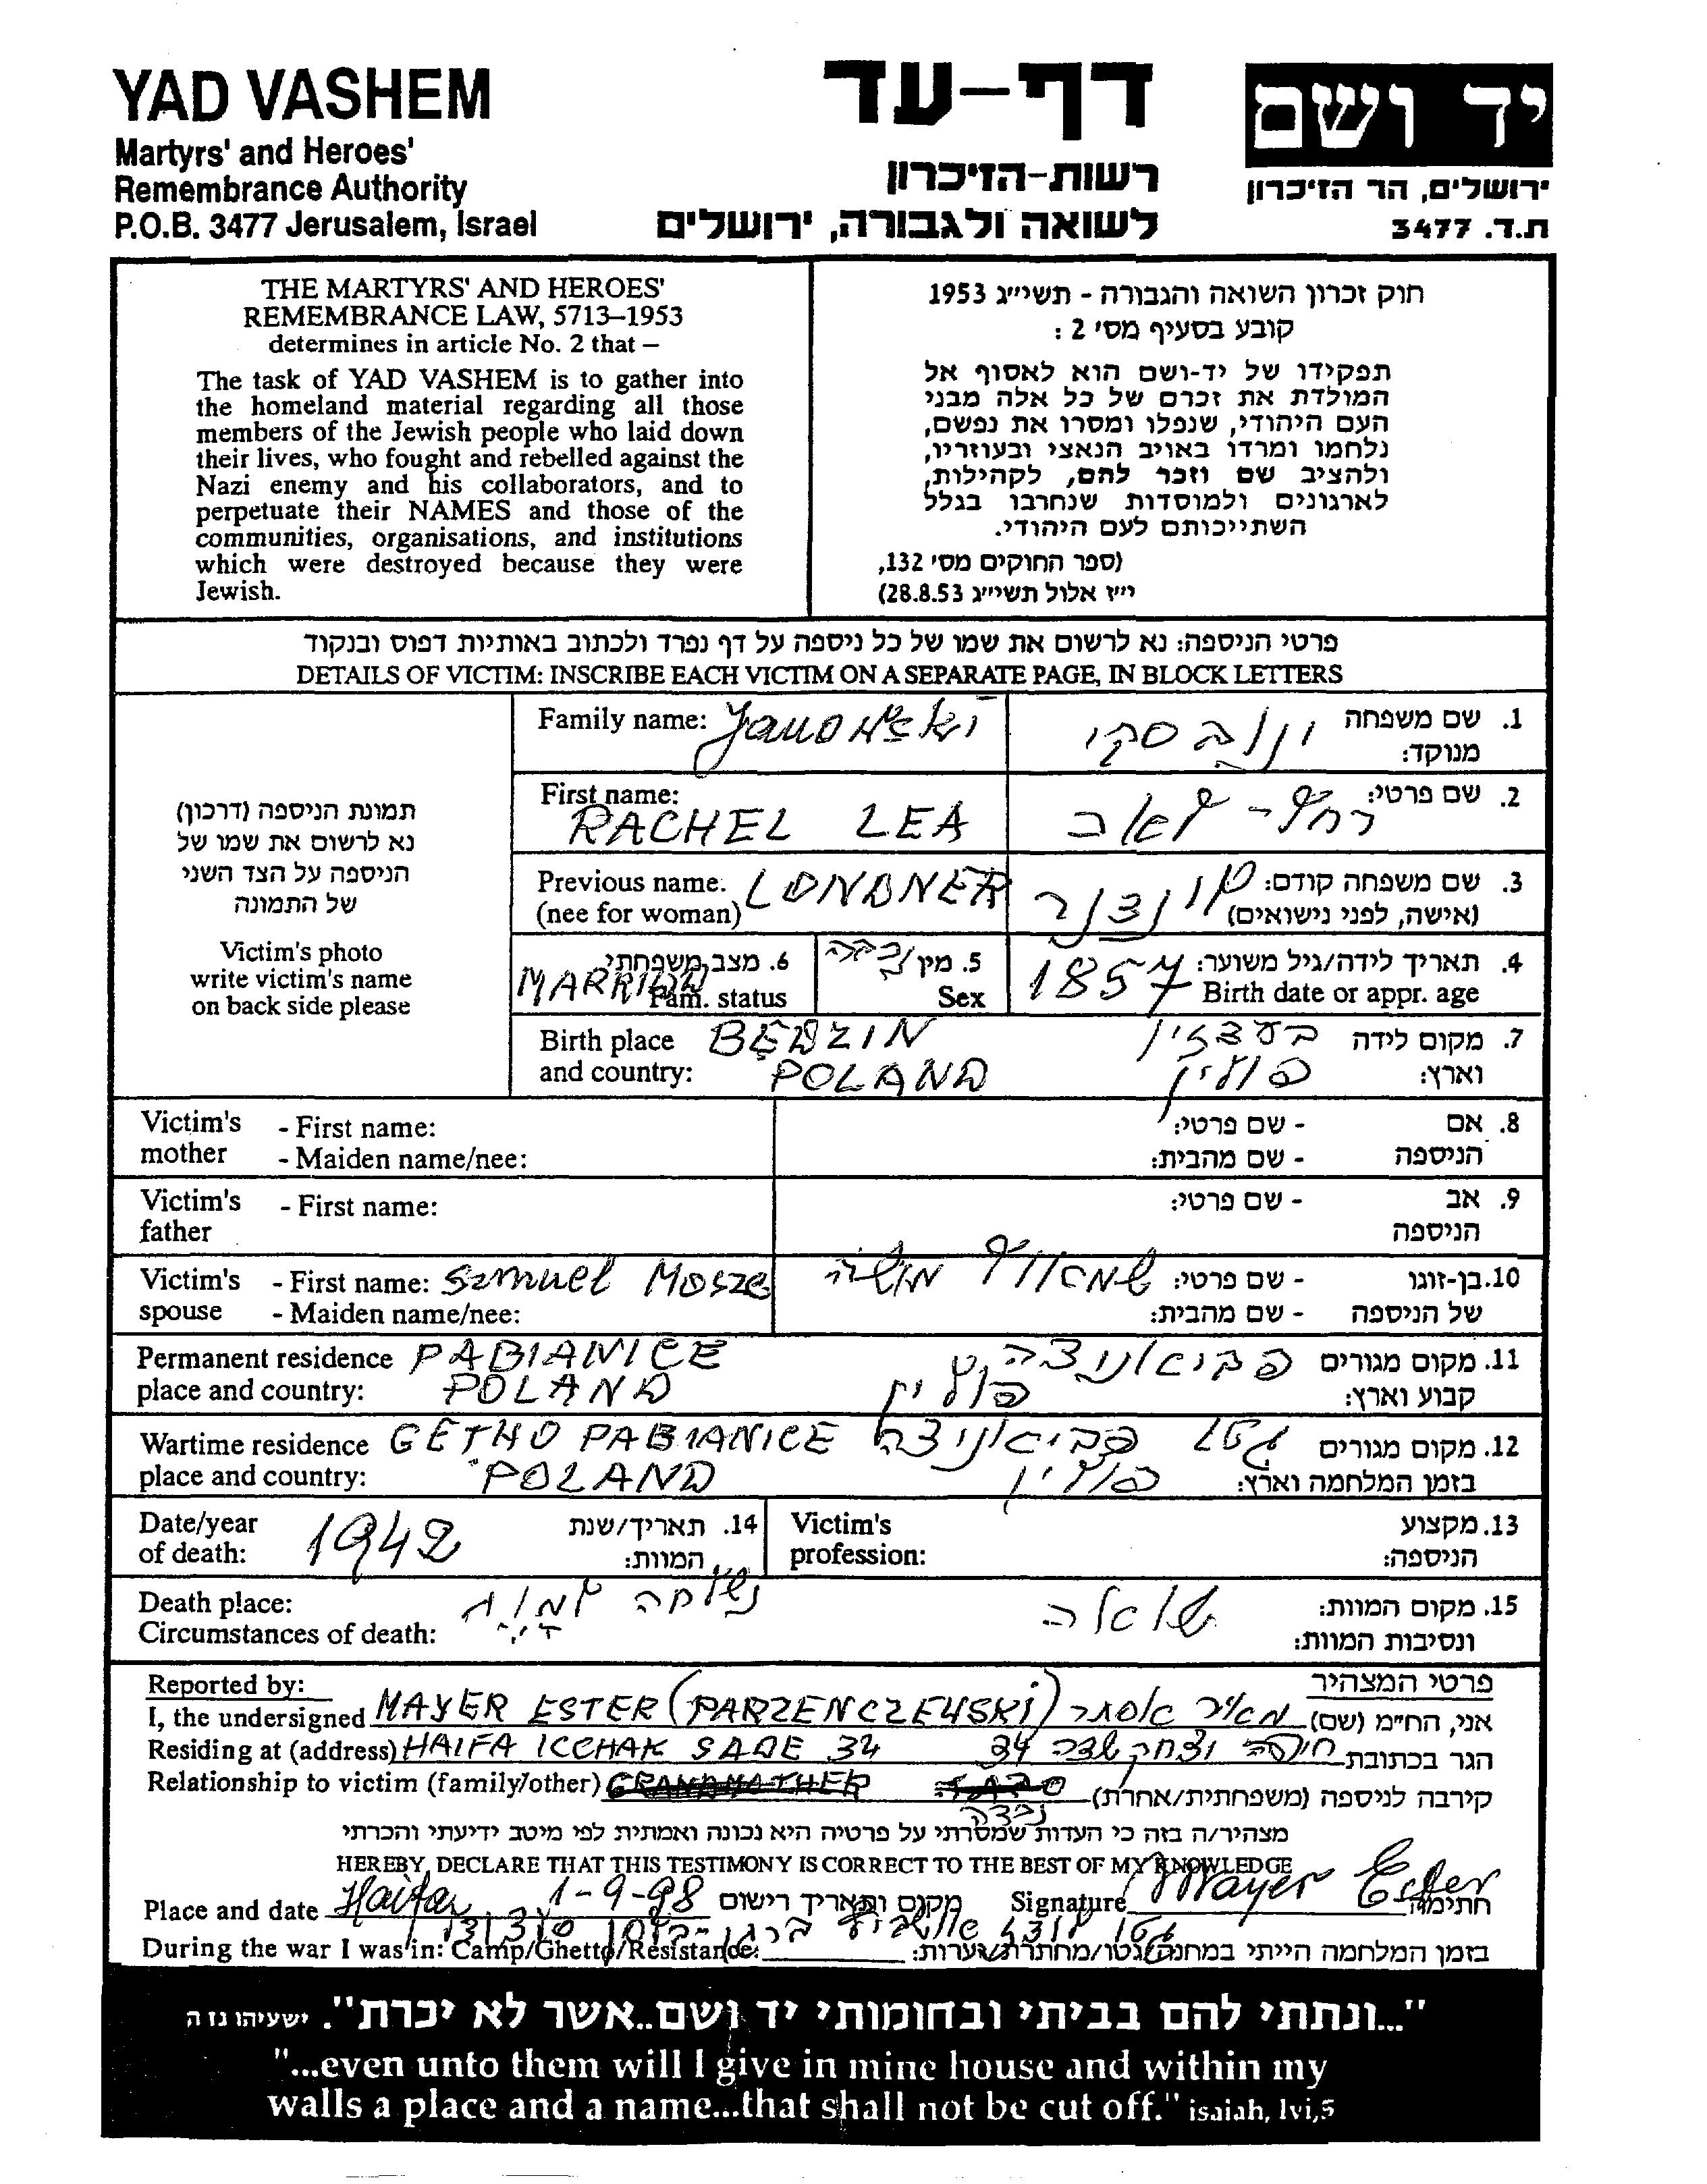 YAD VASHEM
Martyrs' and Heroes'
Remembrance Authority
P.O.B. 3477 Jerusalem, Israel
דף-עד
רשות-הזיכרון
לשואה ולגבורה, ירושלים
יד ושם
ירושלים, הר הזיכרון
ת.ד. 3477
THE MARTYRS' AND HEROES'
REMEMBRANCE LAW, 5713–1953
determines in article No. 2 that –
The task of YAD VASHEM is to gather into
the homeland material regarding all those
members of the Jewish people who laid down
their lives, who fought and rebelled against the
Nazi enemy and his collaborators, and to
perpetuate their NAMES and those of the
communities, organisations, and institutions
which were destroyed because they were
Jewish.
חוק זכרון השואה והגבורה - תשי״ג 1953
קובע בסעיף מס׳ 2 :
תפקידו של יד-ושם הוא לאסוף אל
המולדת את זכרם של כל אלה מבני
העם היהודי, שנפלו ומסרו את נפשם,
נלחמו ומרדו באויב הנאצי ובעוזריו,
ולהציב שם וזכר להם, לקהילות,
לארגונים ולמוסדות שנחרבו בגלל
השתייכותם לעם היהודי.
(ספר החוקים מס׳ 132,
י״ז אלול תשי״ג 28.8.53)
פרטי הניספה: נא לרשום את שמו של כל ניספה על דף נפרד ולכתוב באותיות דפוס ובנקוד
DETAILS OF VICTIM: INSCRIBE EACH VICTIM ON A SEPARATE PAGE, IN BLOCK LETTERS
תמונת הניספה (דרכון)
נא לרשום את שמו של
הניספה על הצד השני
של התמונה
Victim's photo
write victim's name
on back side please
Family name: Janowski
1. שם משפחה
מנוקד: ינובסקי
First name:
RACHEL LEA
2. שם פרטי: רחל - לאה
Previous name: LONDNER
(nee for woman)
3. שם משפחה קודם: לונדנר
(אישה, לפני נישואים)
6. מצב משפחתי
MARRIED Fam. status
5. מין נקבה
Sex
4. תאריך לידה/גיל משוער:
1857 Birth date or appr. age
Birth place BĘDZIN
and country: POLAND
7. מקום לידה בעדזין
וארץ: פולין
Victim's - First name:
mother - Maiden name/nee:
8. אם - שם פרטי:
הניספה - שם מהבית:
Victim's - First name:
father
9. אב - שם פרטי:
הניספה
Victim's - First name: Szmuel Mosze
spouse - Maiden name/nee:
10. בן-זוגו - שם פרטי: שמואל משה
של הניספה - שם מהבית:
Permanent residence PABIANICE
place and country: POLAND
11. מקום מגורים פביאניצה
קבוע וארץ: פולין
Wartime residence GETHO PABIANICE
place and country: POLAND
12. מקום מגורים גטו פביאניצה
בזמן המלחמה וארץ: פולין
Date/year
of death: 1942
14. תאריך/שנת
המוות:
Victim's
profession:
13. מקצוע
הניספה:
Death place:
Circumstances of death:
15. מקום המוות: שואה
ונסיבות המוות: נשלחה
Reported by:
פרטי המצהיר
I, the undersigned MAYER ESTER (PARZENCZEWSKI)
אני, הח״מ (שם) מאיר אסתר
Residing at (address) HAIFA ICCHAK SADE 34
הגר בכתובת חיפה יצחק שדה 34
Relationship to victim (family/other) GRANDMATHER
קירבה לניספה (משפחתית/אחרת)
נכדה
מצהיר/ה בזה כי העדות שמסרתי על פרטיה היא נכונה ואמתית לפי מיטב ידיעתי והכרתי
HEREBY DECLARE THAT THIS TESTIMONY IS CORRECT TO THE BEST OF MY KNOWLEDGE
Place and date Haifa 1-9-98 מקום ותאריך רישום Signature Mayer Ester חתימה
During the war I was in: Camp/Ghetto/Resistance:
בזמן המלחמה הייתי במחנה/גטו/מחתרת/יערות: גטו לודז אושביץ ברגן-בלזן
"...ונתתי להם בביתי ובחומותי יד ושם..אשר לא יכרת". ישעיהו נו ה
"...even unto them will I give in mine house and within my
walls a place and a name...that shall not be cut off." isaiah, lvi,5